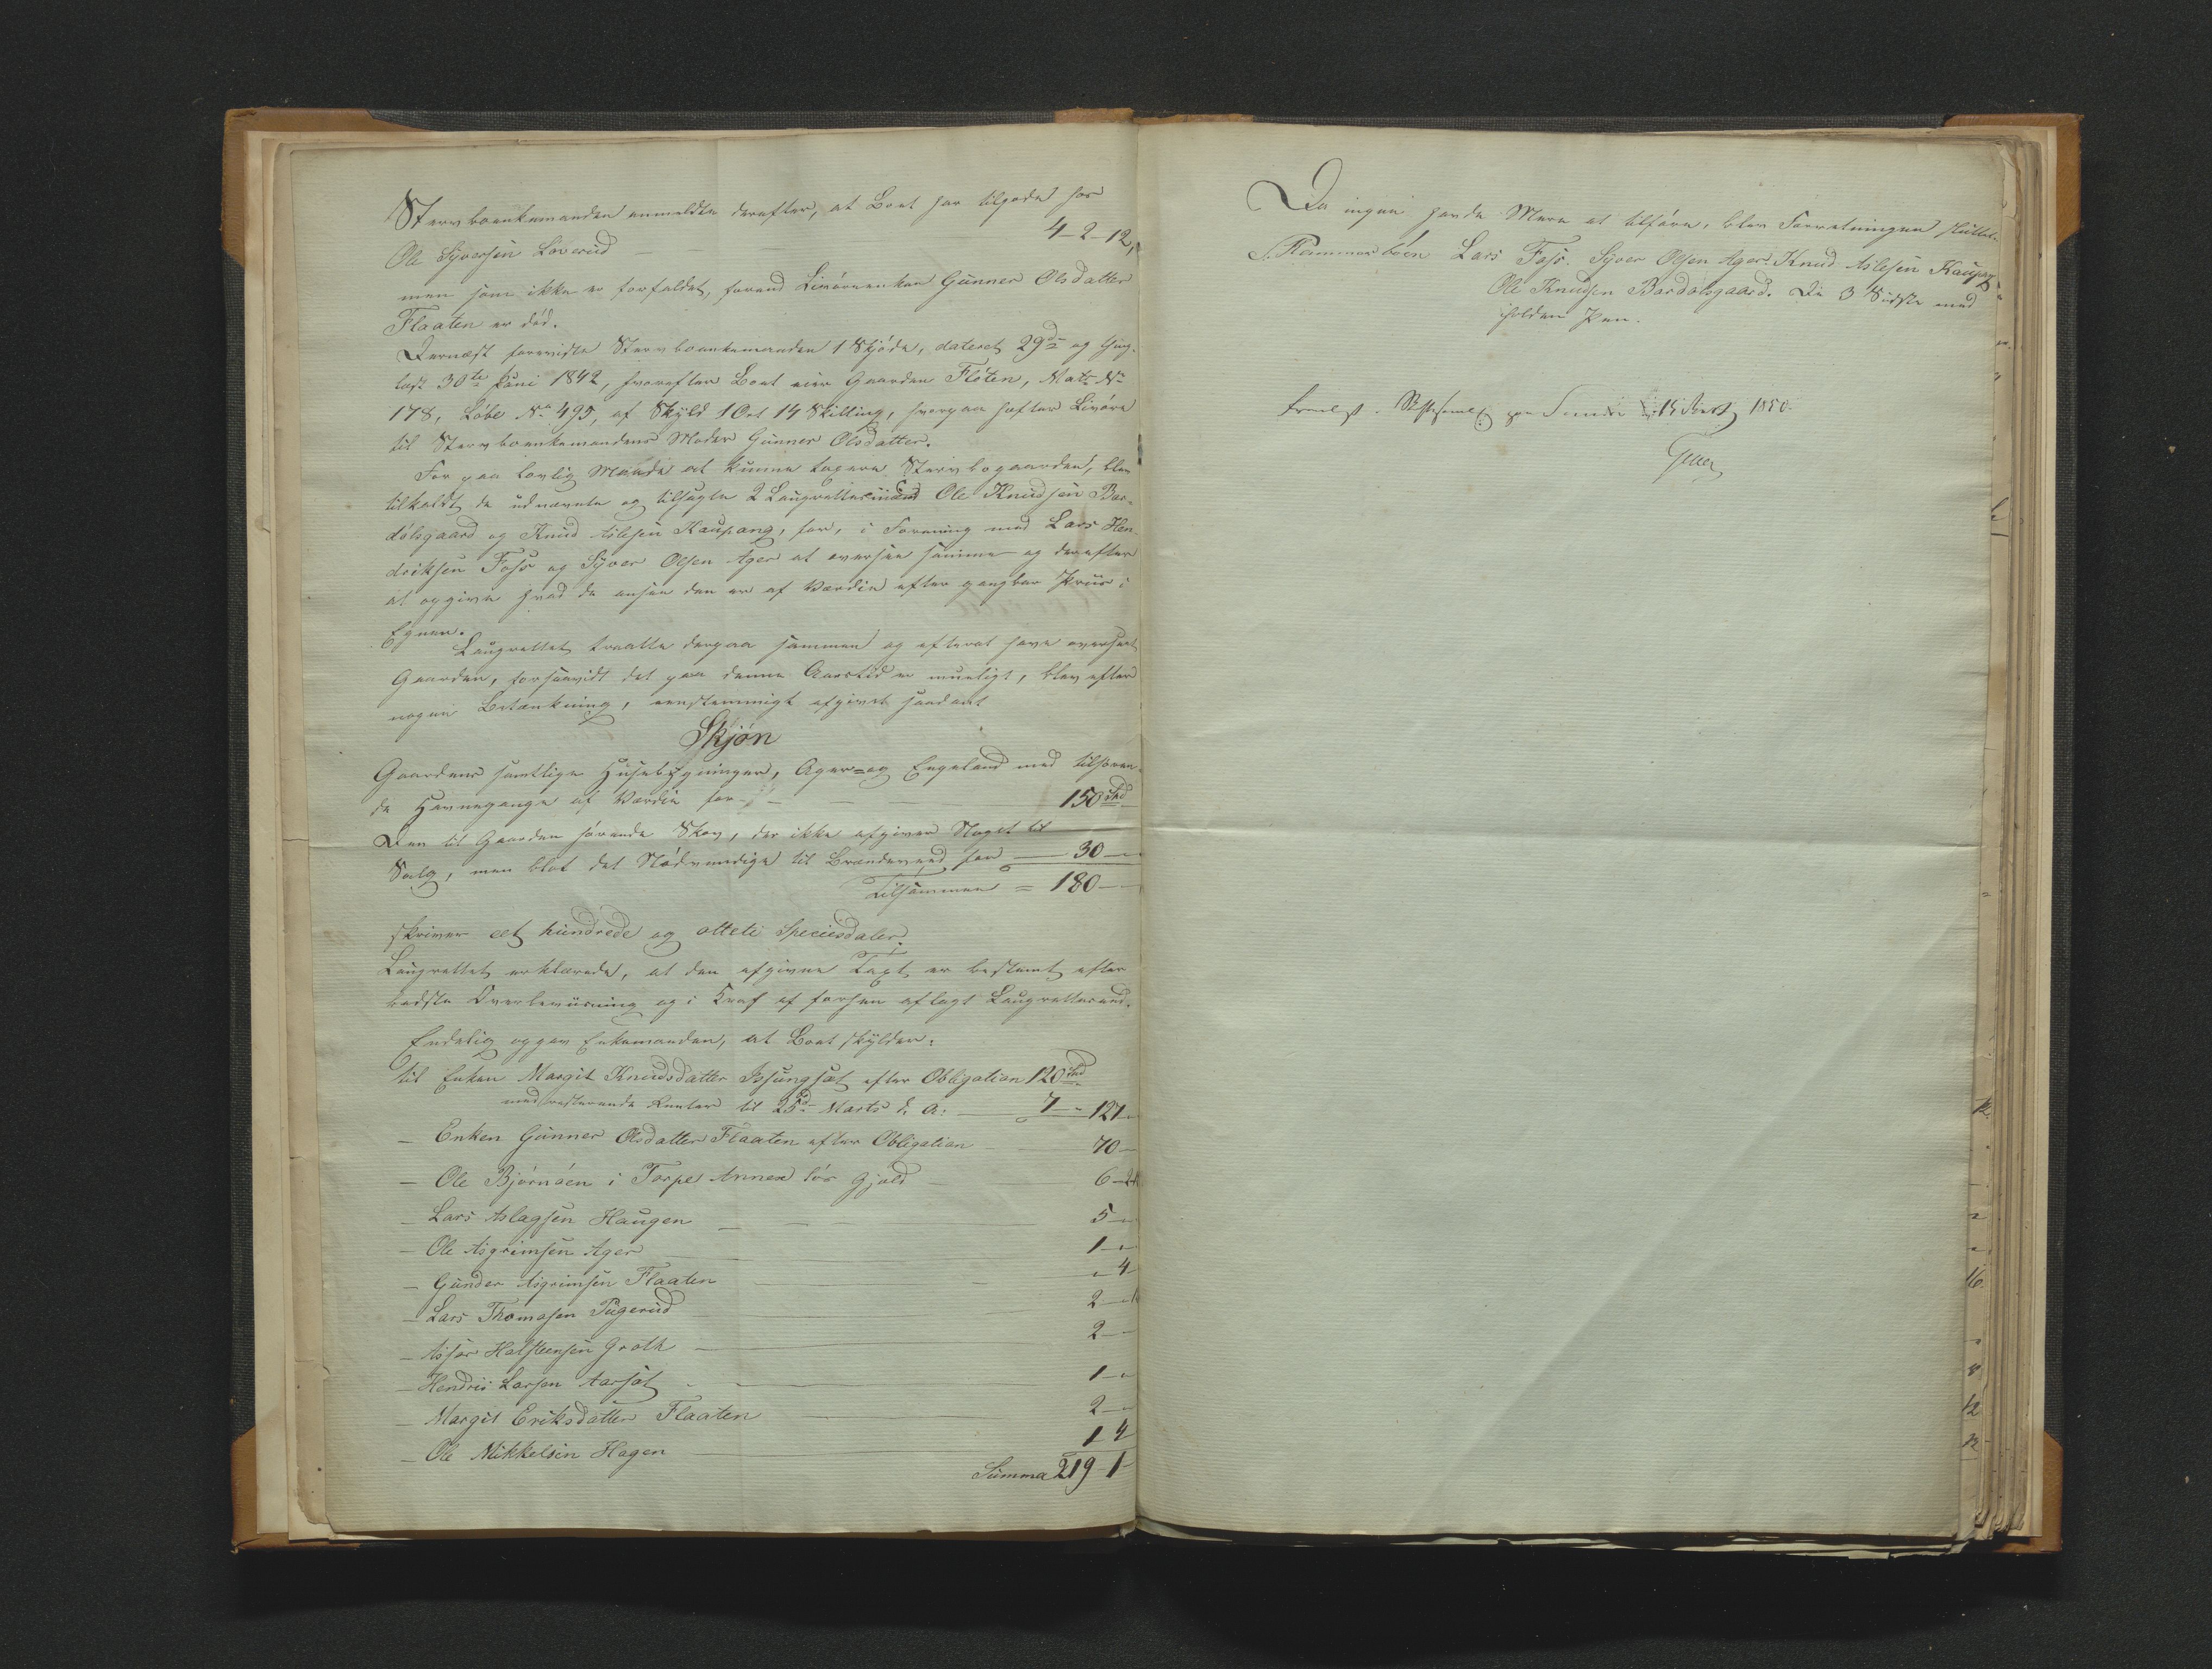 Stervboenkemanden anmeldte derefter, at Boet har tilgode hos
Ole Syversen Löverud 4-2-12,
men som ikke er forfaldet, forend Livörenken Gunner Olsdatter
Flaaten er död.
Dernæst foreviste Stervboenkemanden 1 Skjöde, dateret 29de og
læst 30te Juni 1842, hvorefter Boet eier Gaarden Flöten, Matr. No
178, Löbe No 495, af Skyld 1 Ort 14 Skilling, hvorpaa hefter Livöre
til Stervboenkemandens Moder Gunner Olsdatter.
For paa lovlig Maade at kunne taxere Stervbogaarden, blev
tilkaldt de udnævnte og tilsagte 2 Laugrettesmænd Ole Knudsen Bar-
dölsgaard og Knud Aslesen Kaupang, for, i Forening med Lars Hen-
driksen Foss og Syver Olsen Ager at oversee samme og derefter
at opgive hvad de ansee den er af Værdie efter gangbar Priis i
Egnen.
Laugrettet traatte derpaa sammen og efterat have overseet
Gaarden, forsaavidt det paa denne Aarstid er mueligt, blev efter
nogen Betænkning, eenstemmigt afgivet saadant
Skjön
Gaardens samtlige Huusebygninger, Ager- og Engeland med tilhören-
de Havnegange af Værdie for - 150 Spd
Den til Gaarden hörende Skov, der ikke afgiver Noget til
Salg, men blot det Nödvendige til Brændeved for - 30 -
Tilsammen = 180 -
skriver eet hundrede og otteti Speciesdaler.
Laugrettet erklærede, at den afgivne Taxt er bestemt efter
bedste Overbeviisning og i Kraf af forhen aflagt Laugrettesed.
Endelig opgav Enkemanden, at Boet skylder:
til Enken Margit Knudsdatter efter Obligation 120 Spd
med resterende Renter til 25de Marts d. A: - 7 - 127 -
- Enken Gunner Olsdatter Flaaten efter Obligation - 70 -
- Ole Björnöen i Torpe Annex lös Gjeld - 6 - 24
- Lars Aslagsen Haugen - 5 -
- Ole Asgrimsen Ager - 1 -
- Gunder Asgrimsen Flaaten - " 4 -
- Lars Thomasen - 2 -
- Assor Halsteensen Groth - 2 -
- Hendrik Larsen - 1 -
- Margit Eriksdatter Flaaten - 2 -
- Ole Mikkelsen Hagen - 1 4
Summa 219 - 1 -
Da ingen havde Mere at tilföre, blev Forretningen sluttet.
Lars Foss. Syver Olsen Ager. Knud Aslesen Kaupang
Ole Knudsen Bardölsgaard. De 3 Sidste med
holden Pen.
Fremlagt i Skiftesamling paa 15 1850.